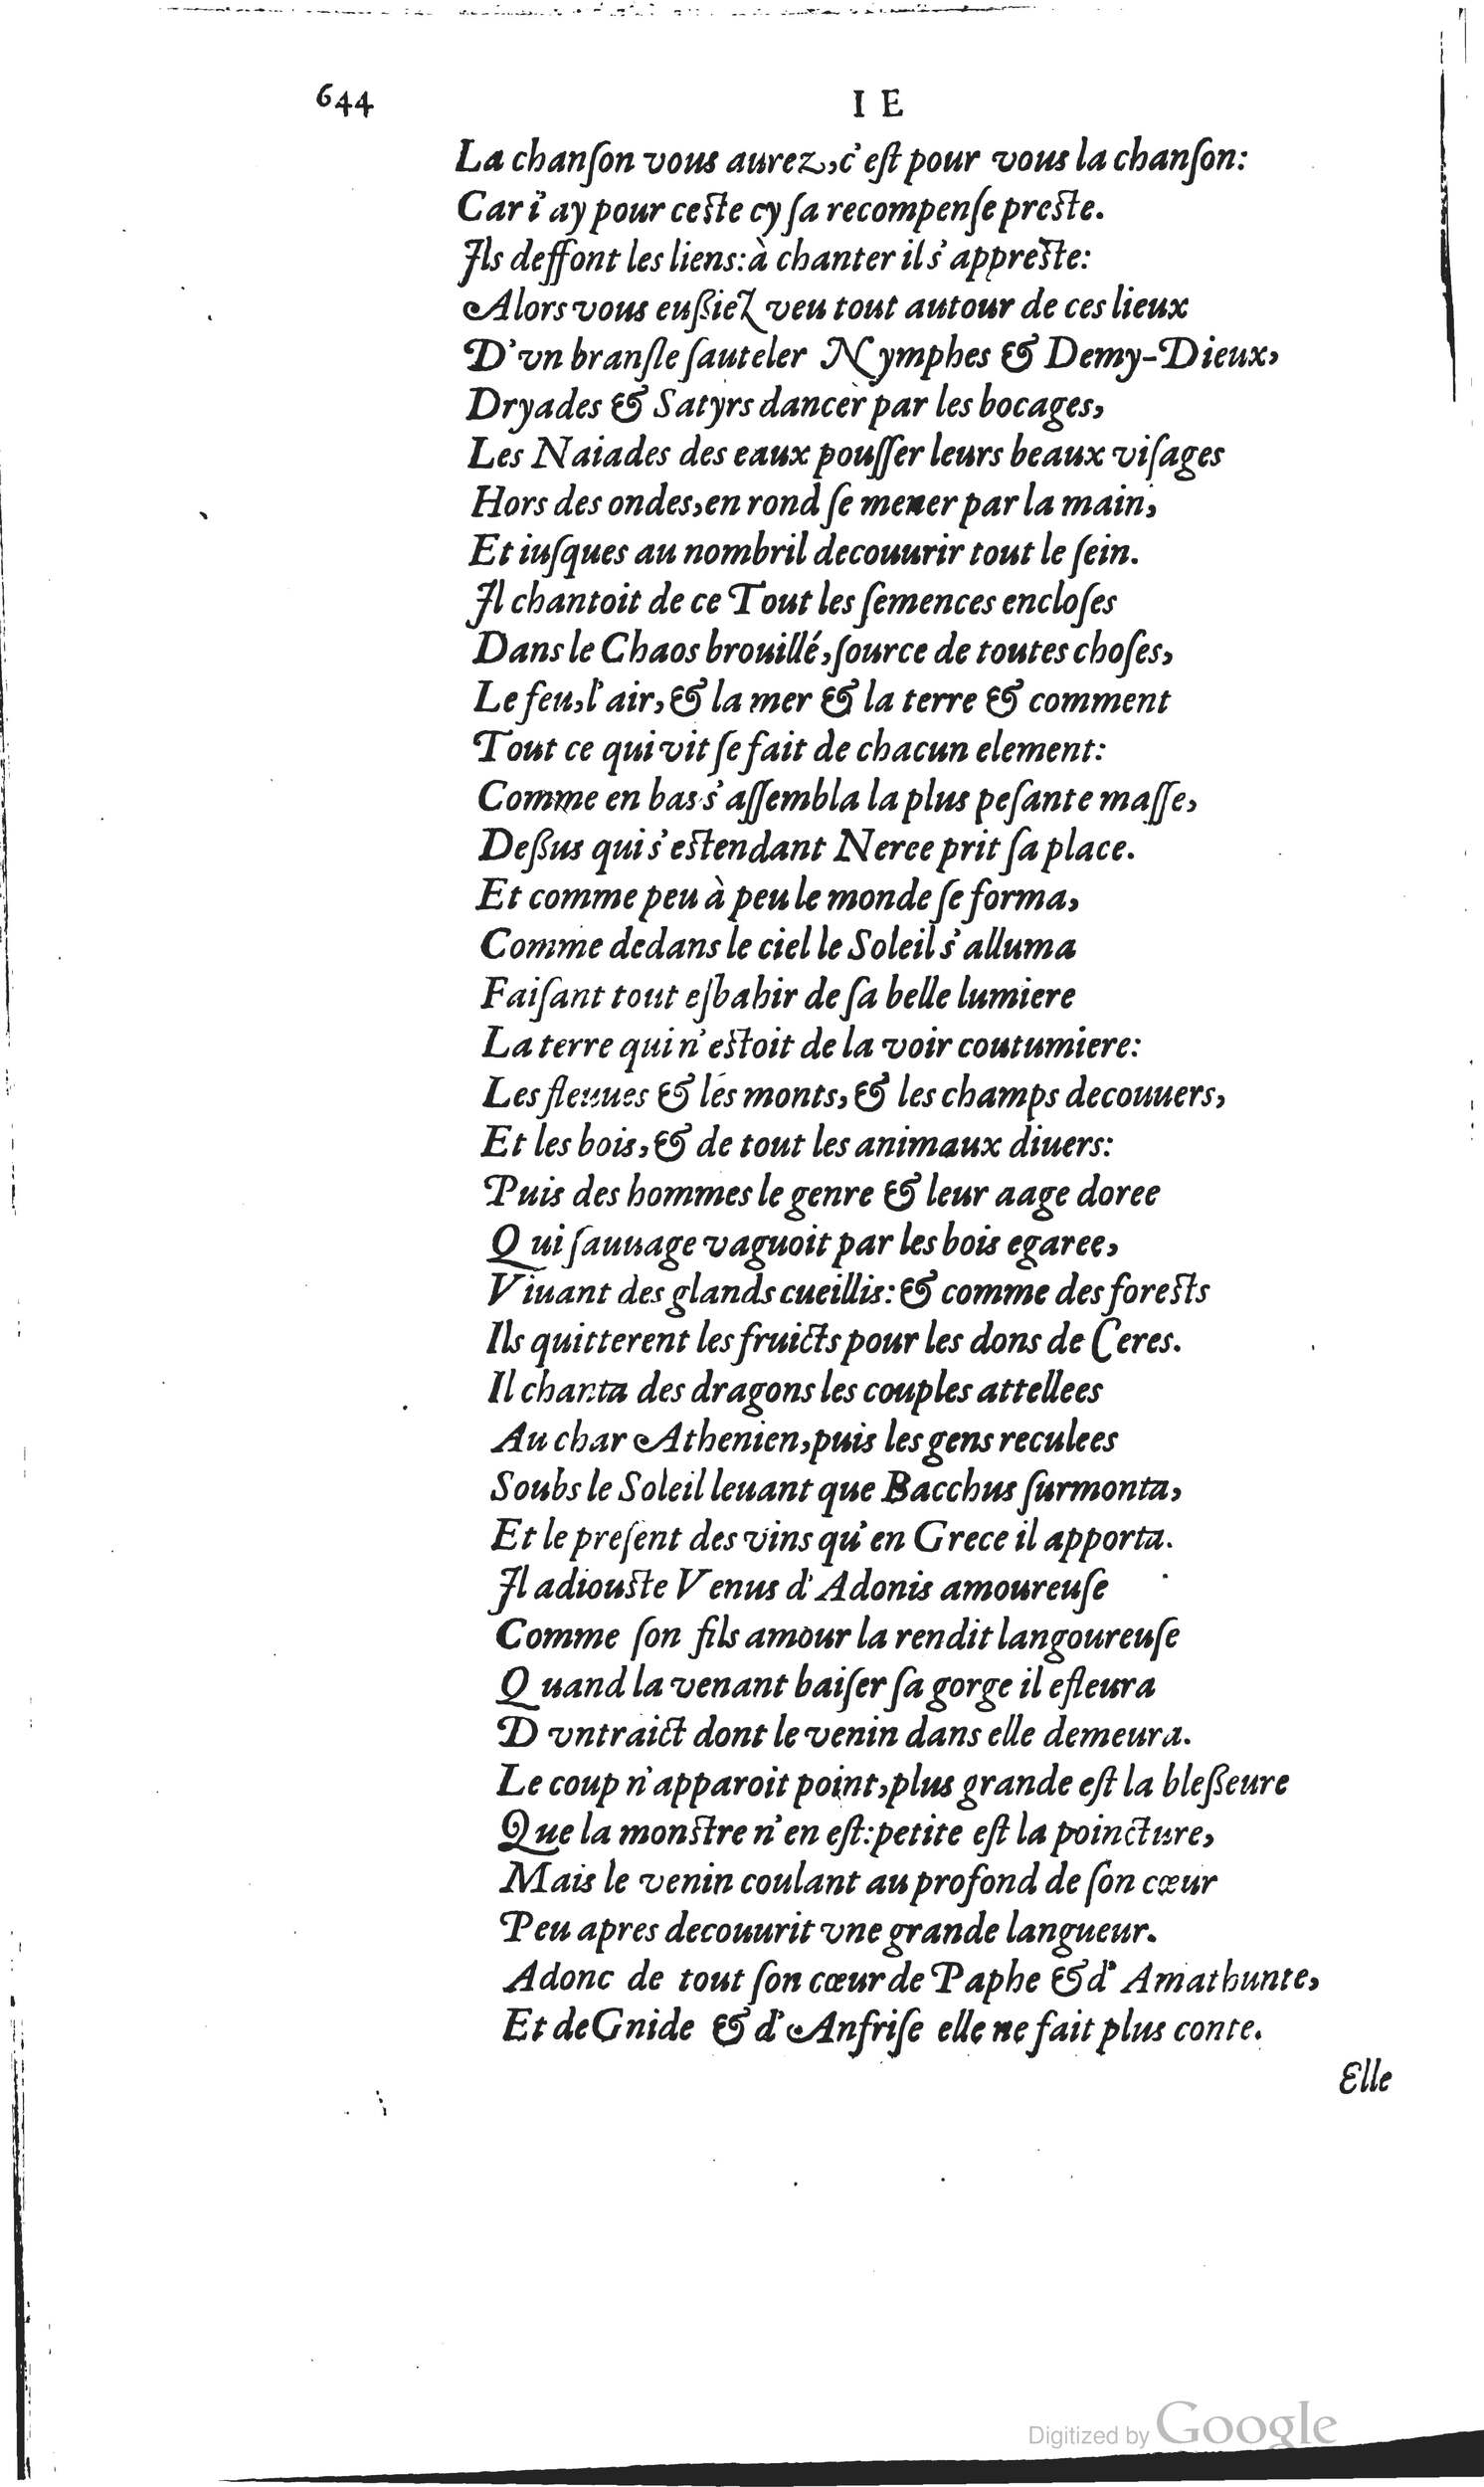 644
I E
La chanſon vous aurez, c'eſt pour vous la chanſon:
Car i'ay pour ceſte cy ſa recompenſe preſte.
Ils deffont les liens: à chanter il s'appreſte:
Alors vous eußiez veu tout autour de ces lieux
D'vn branſle ſauteler Nymphes & Demy-Dieux,
Dryades & Satyrs dancer par les bocages,
Les Naiades des eaux pouſſer leurs beaux viſages
Hors des ondes, en rond ſe mener par la main,
Et iuſques au nombril decouurir tout le ſein.
Il chantoit de ce Tout les ſemences encloſes
Dans le Chaos brouillé, ſource de toutes choſes,
Le feu, l'air, & la mer & la terre & comment
Tout ce qui vit ſe fait de chacun element:
Comme en bas s'aſſembla la plus peſante maſſe,
Deßus qui s'eſtendant Neree prit ſa place.
Et comme peu à peu le monde ſe forma,
Comme dedans le ciel le Soleil s'alluma
Faiſant tout eſbahir de ſa belle lumiere
La terre qui n'eſtoit de la voir coutumiere:
Les fleuues & les monts, & les champs decouuers,
Et les bois, & de tout les animaux diuers:
Puis des hommes le genre & leur aage doree
Qui ſauuage vaguoit par les bois egaree,
Viuant des glands cueillis: & comme des foreſts
Ils quitterent les fruicts pour les dons de Ceres.
Il chanta des dragons les couples attellees
Au char Athenien, puis les gens reculees
Soubs le Soleil leuant que Bacchus ſurmonta,
Et le preſent des vins qu'en Grece il apporta.
Il adiouſte Venus d'Adonis amoureuſe
Comme ſon fils amour la rendit langoureuſe
Quand la venant baiſer ſa gorge il efleura
D vn traict dont le venin dans elle demeura.
Le coup n'apparoit point, plus grande eſt la bleßeure
Que la monſtre n'en eſt: petite eſt la poincture,
Mais le venin coulant au profond de ſon cœur
Peu apres decouurit vne grande langueur.
Adonc de tout ſon cœur de Paphe & d'Amathunte,
Et de Gnide & d'Anfriſe elle ne fait plus conte.
Elle
Digitized by Google